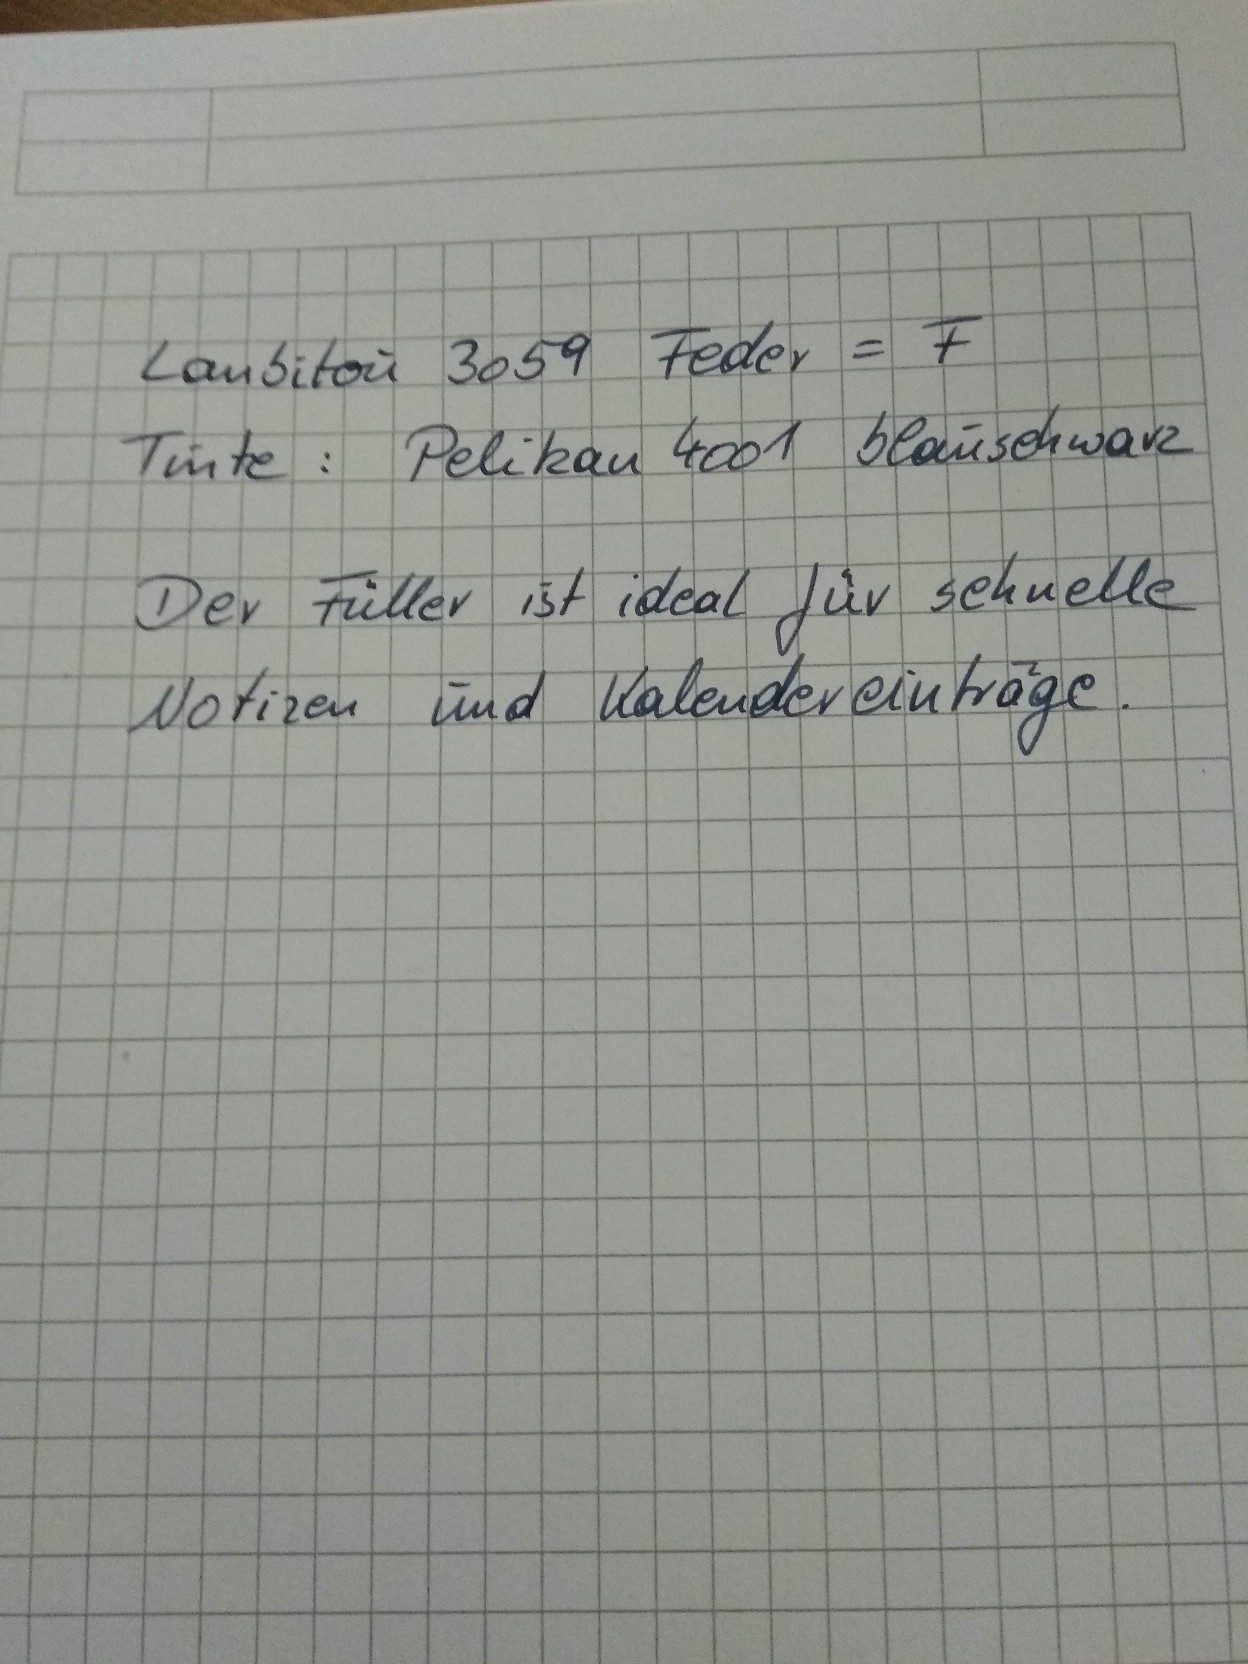 Lanbitou 3059 Feder = F
Tinte : Pelikan 4001 blauschwarz
Der Füller ist ideal für schnelle
Notizen und Kalendereinträge.